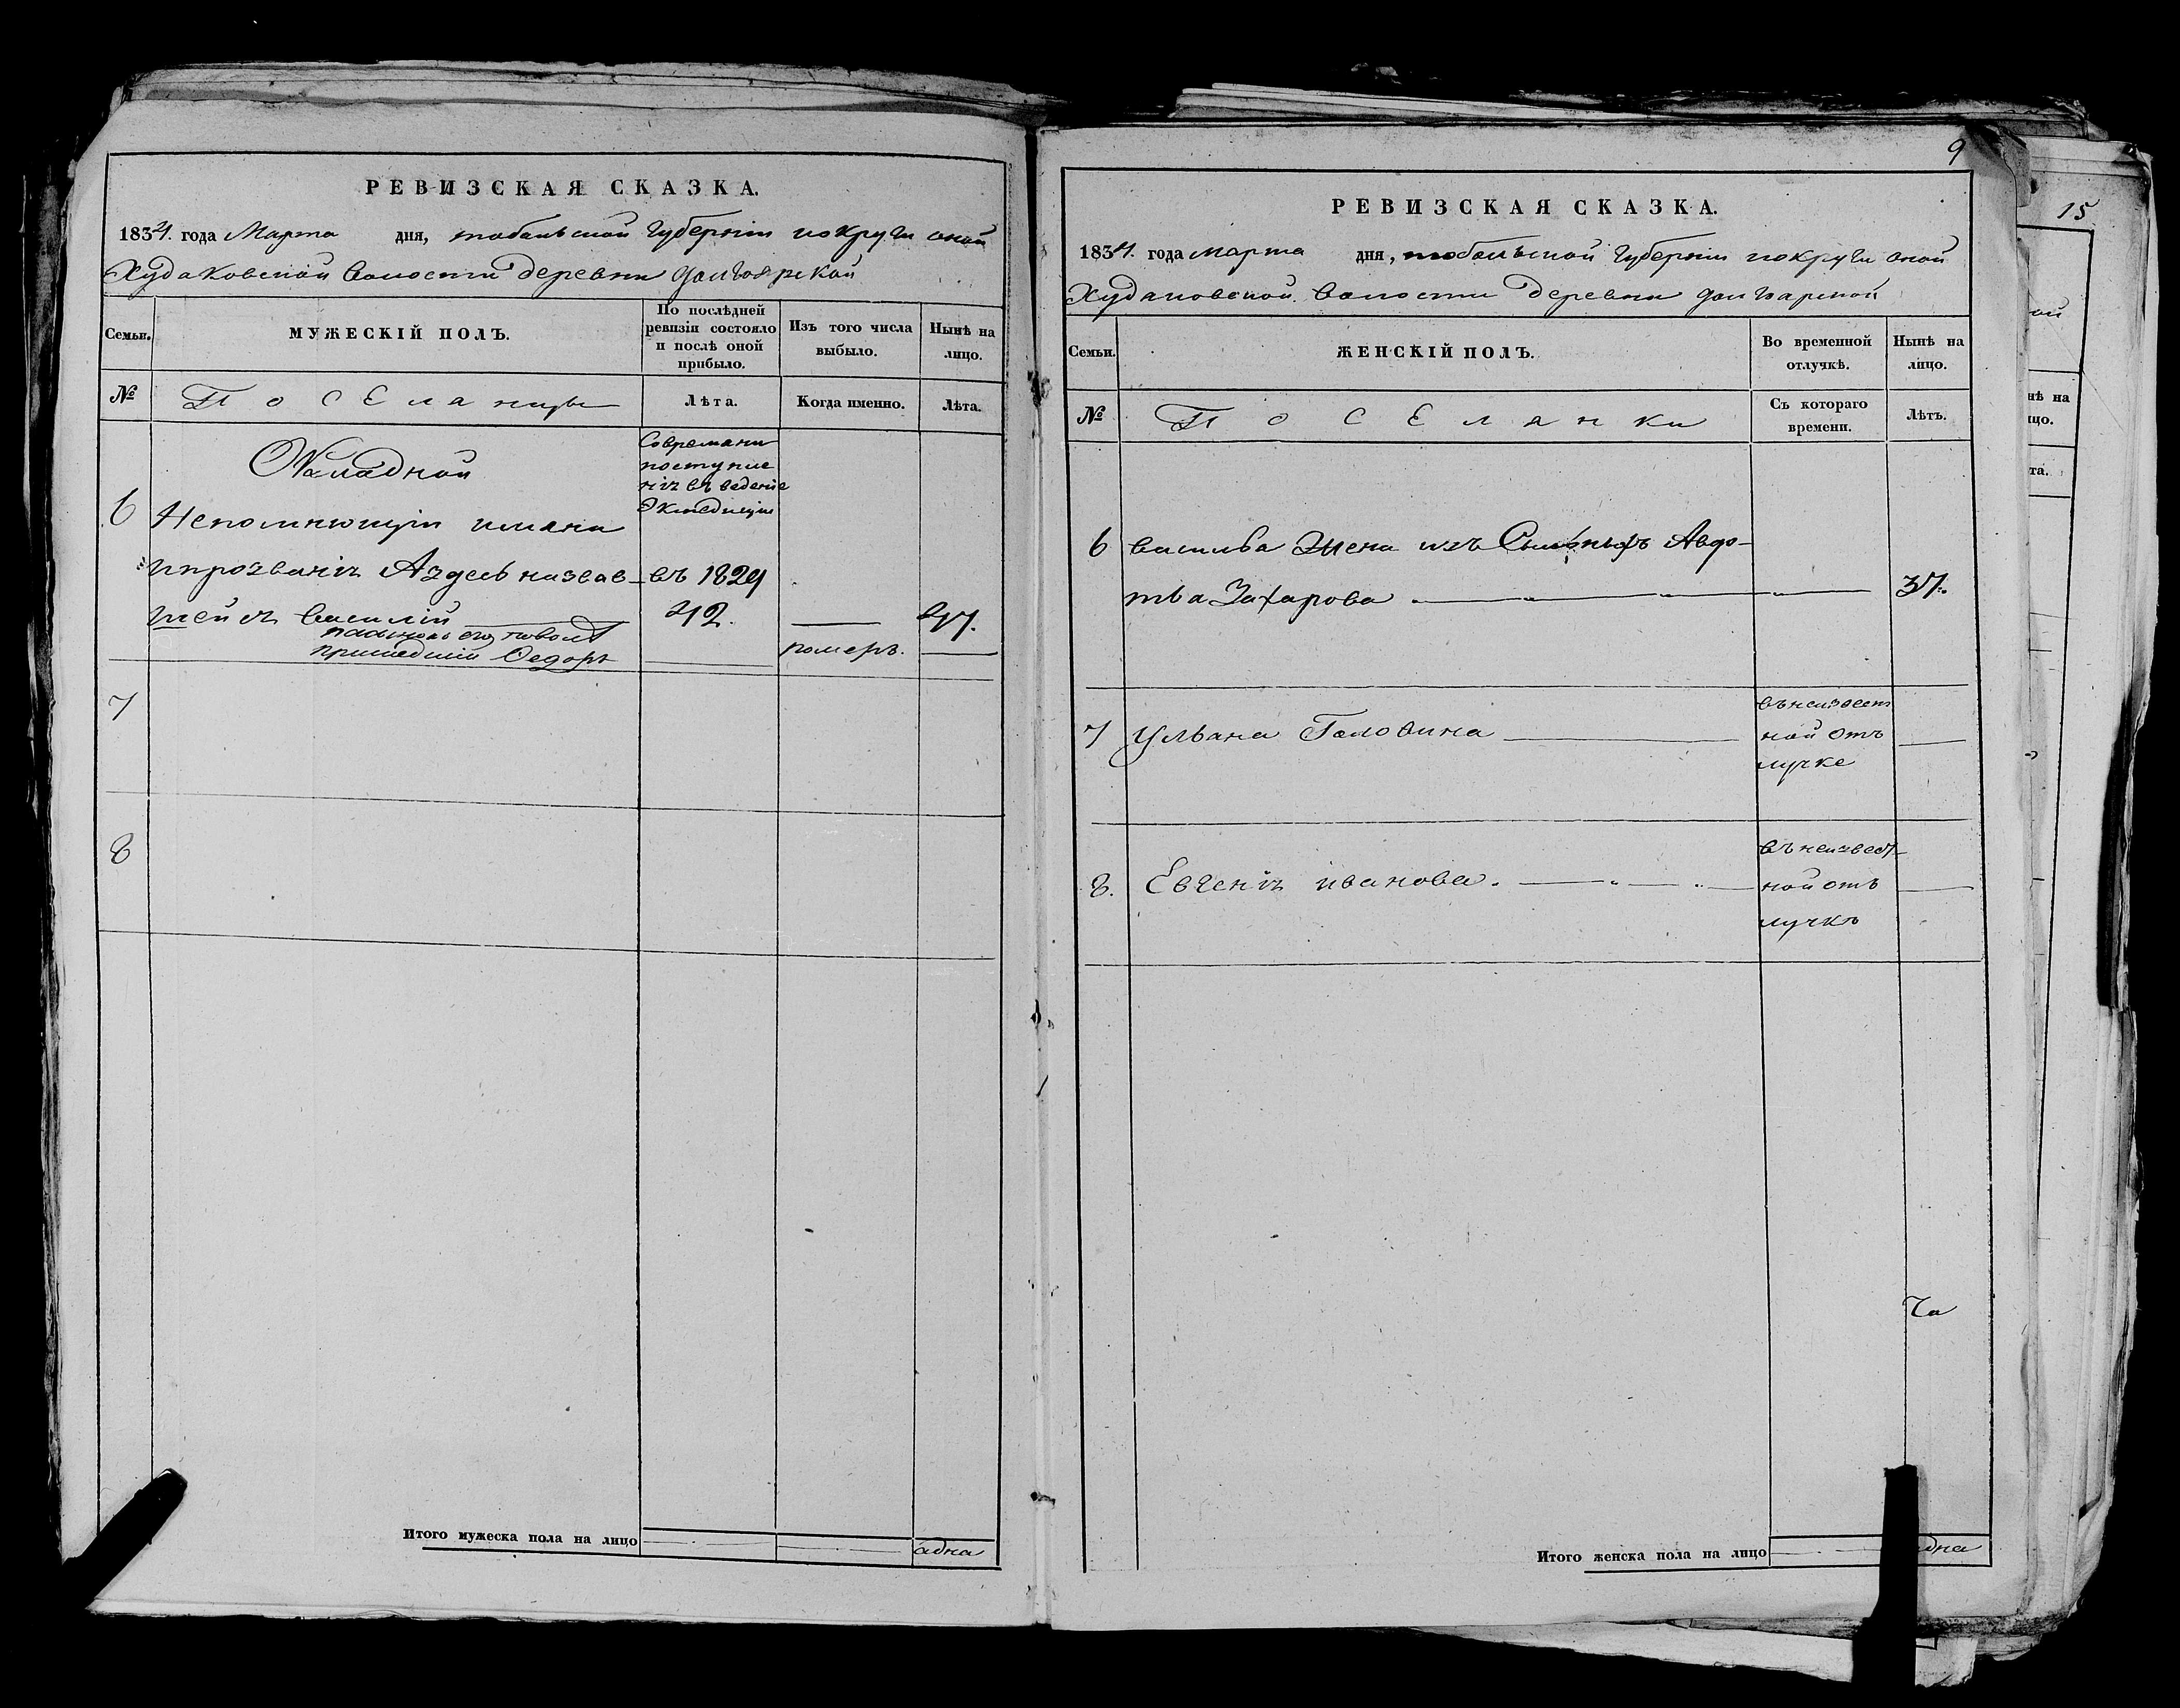 РЕВИЗСКАЯ СКАЗКА.
1834. года Марта дня, тобольской Губернiи иокруги оной
Худаковской Волости Деревни Долгоярской
Семьи.
МУЖЕСКІЙ ПОЛЪ.
По послѣдней ревизіи состояло и послѣ оной прибыло.
Изъ того числа выбыло.
Нынѣ на лицо.
№
Поселанцы
Лѣта.
Когда именно.
Лѣта.
Окладной
Совремани
поступле
нiя въ ведение
Экспедицiи
6 Непомнющiи имани
ипрозванiя Аздесь назвав-
въ 1829
шейся Василiй
42.
47.
пасынокъ его
пришедшiй Федоръ
померъ.
7
8
Итого мужеска пола на лицо
адна
9
РЕВИЗСКАЯ СКАЗКА.
1834. года марта дня, тобольской Губернiи иокруги оной
Худаковской Волости Деревни Долгоярской
Семьи.
ЖЕНСКІЙ ПОЛЪ.
Во временной отлучкѣ.
Нынѣ на лицо.
№
Поселянки
Съ котораго времени.
Лѣтъ.
6 васильва Жена изъ Сыльныхъ Авдо-
тьа Захарова
37.
7 Ульана Головина
въ неизвест
ной отъ
лучке
8. Евгенiя иванова.
въ неизвест-
ной отъ
лучкъ
Итого женска пола на лицо
адна
15